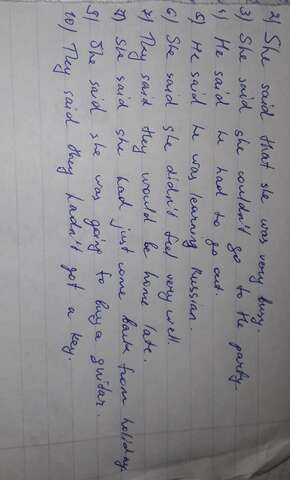 2) She said that she was very busy.
3) She said she couldn't go to the party.
4) He said he had to go out.
5) He said he was learning Russian.
6) She said she didn't feel very well.
7) They said they would be home late.
8) She said she had just come back from holiday.
9) She said she was going to buy a guitar.
10) They said they hadn't got a key.